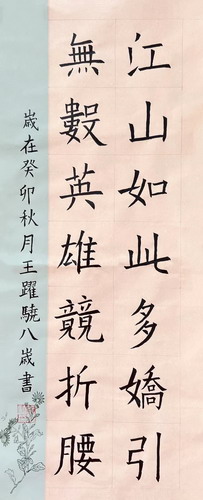 江山如此多嬌引
無數英雄競折腰
歲在癸卯秋月王躍驍八歲書